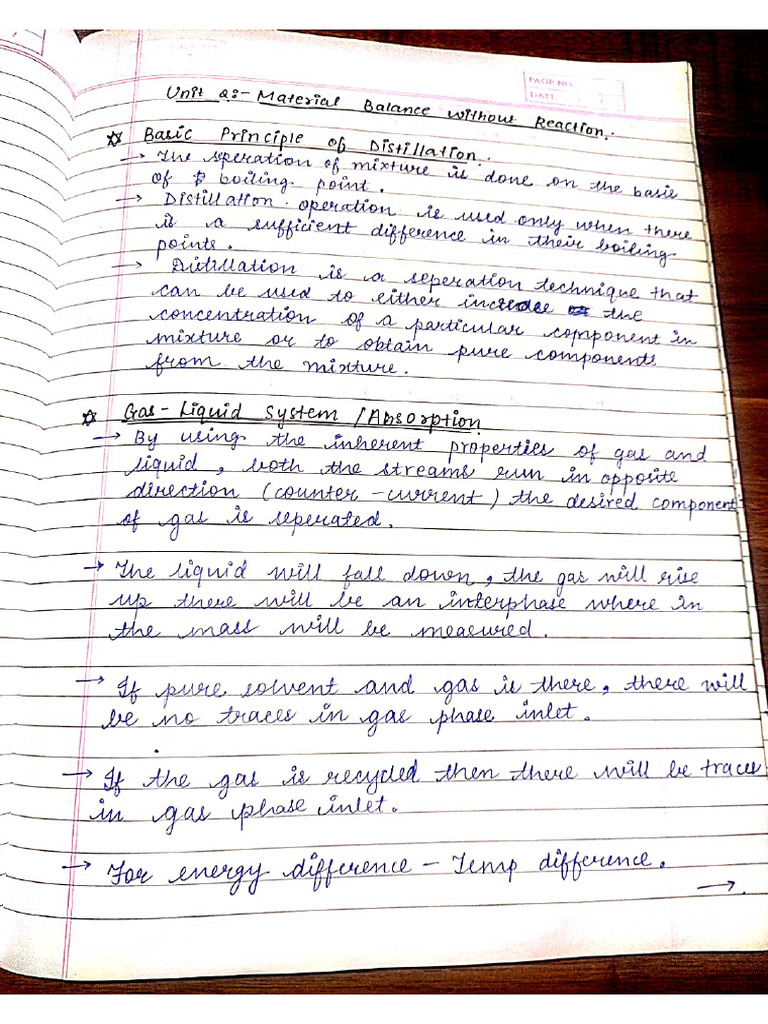 PAGE NO.
DATE
Unit 2:- Material Balance without Reaction.
☆ Basic Principle of Distillation.
→ The seperation of mixture is done on the basic
of boiling point.
→ Distillation operation is used only when there
is a sufficient difference in their boiling
points.
→ Distillation is a seperation technique that
can be used to either increase the
concentration of a particular component in
mixture or to obtain pure components
from the mixture.
☆ Gas-Liquid System / Absorption
→ By using the inherent properties of gas and
liquid, both the streams run in opposite
direction (counter-current) the desired component
of gas is seperated.
→ The liquid will fall down, the gas will rise
up there will be an interphase where in
the mass will be measured.
→ If pure solvent and gas is there, there will
be no traces in gas phase inlet.
→ If the gas is recycled then there will be traces
in gas phase inlet.
→ For energy difference - Temp difference.
→